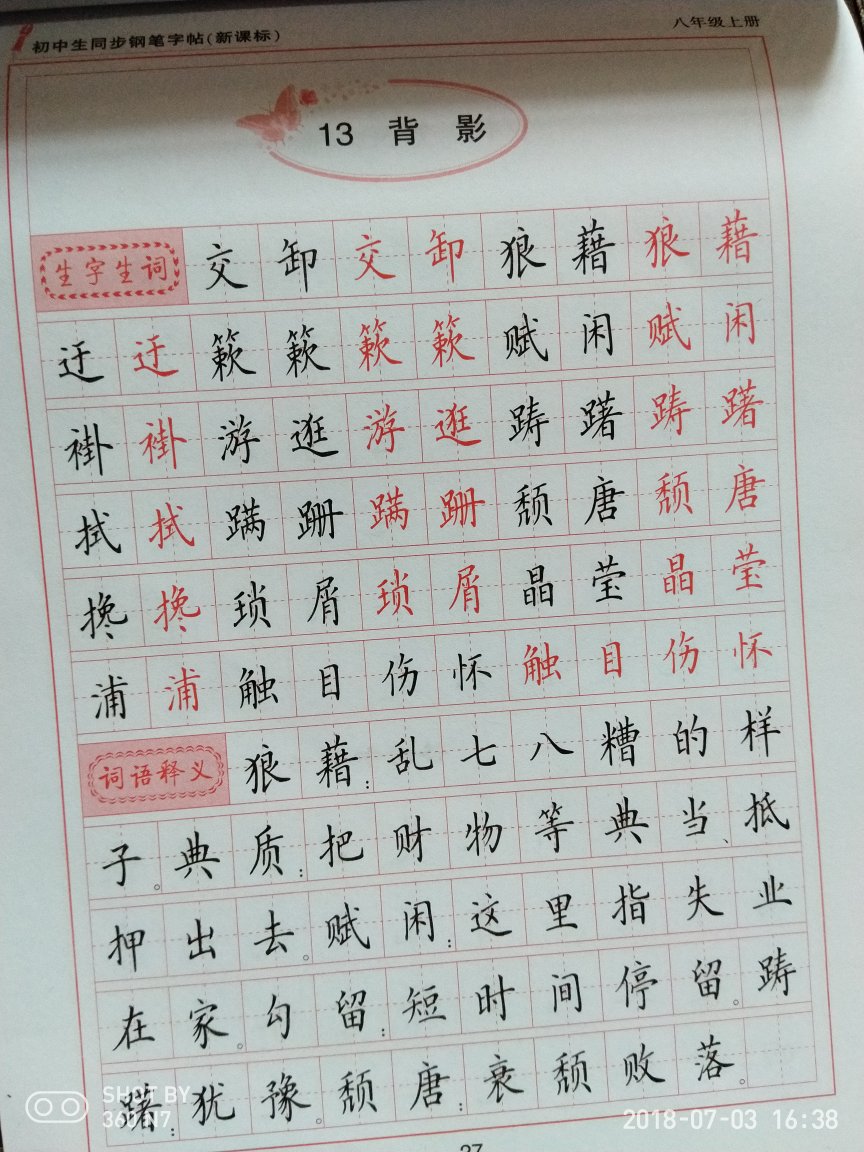 初中生同步钢笔字帖(新课标)
八年级上册
13 背影
生字生词 交卸交卸狼藉狼藉
迂迂簌簌簌簌赋闲赋闲
褂褂游逛游逛踌躇踌躇
拭拭蹒跚蹒跚颓唐颓唐
搀搀琐屑琐屑晶莹晶莹
浦浦触目伤怀触目伤怀
词语释义 狼藉:乱七八糟的样
子。典质:把财物等典当、抵
押出去。赋闲:这里指失业
在家。勾留:短时间停留。踌
躇:犹豫。颓唐:衰颓败落。
27
SHOT BY
360 N7
2018-07-03 16:38